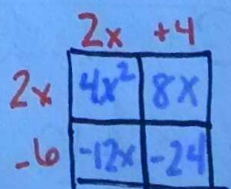 2x +4
2x 4x² 8x
-6 -12x -24